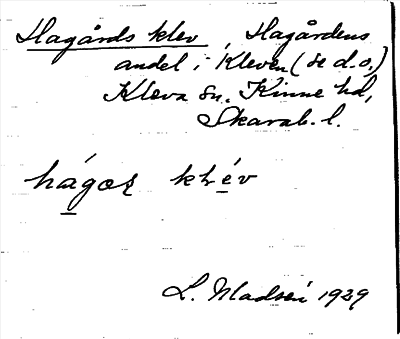 Hagårds klev Hagårdens
andel i Kleven (se d.o.)
Kleva sn. Kinne hd,
Skarab. l.
hágoz klév
L. Madsén 1929